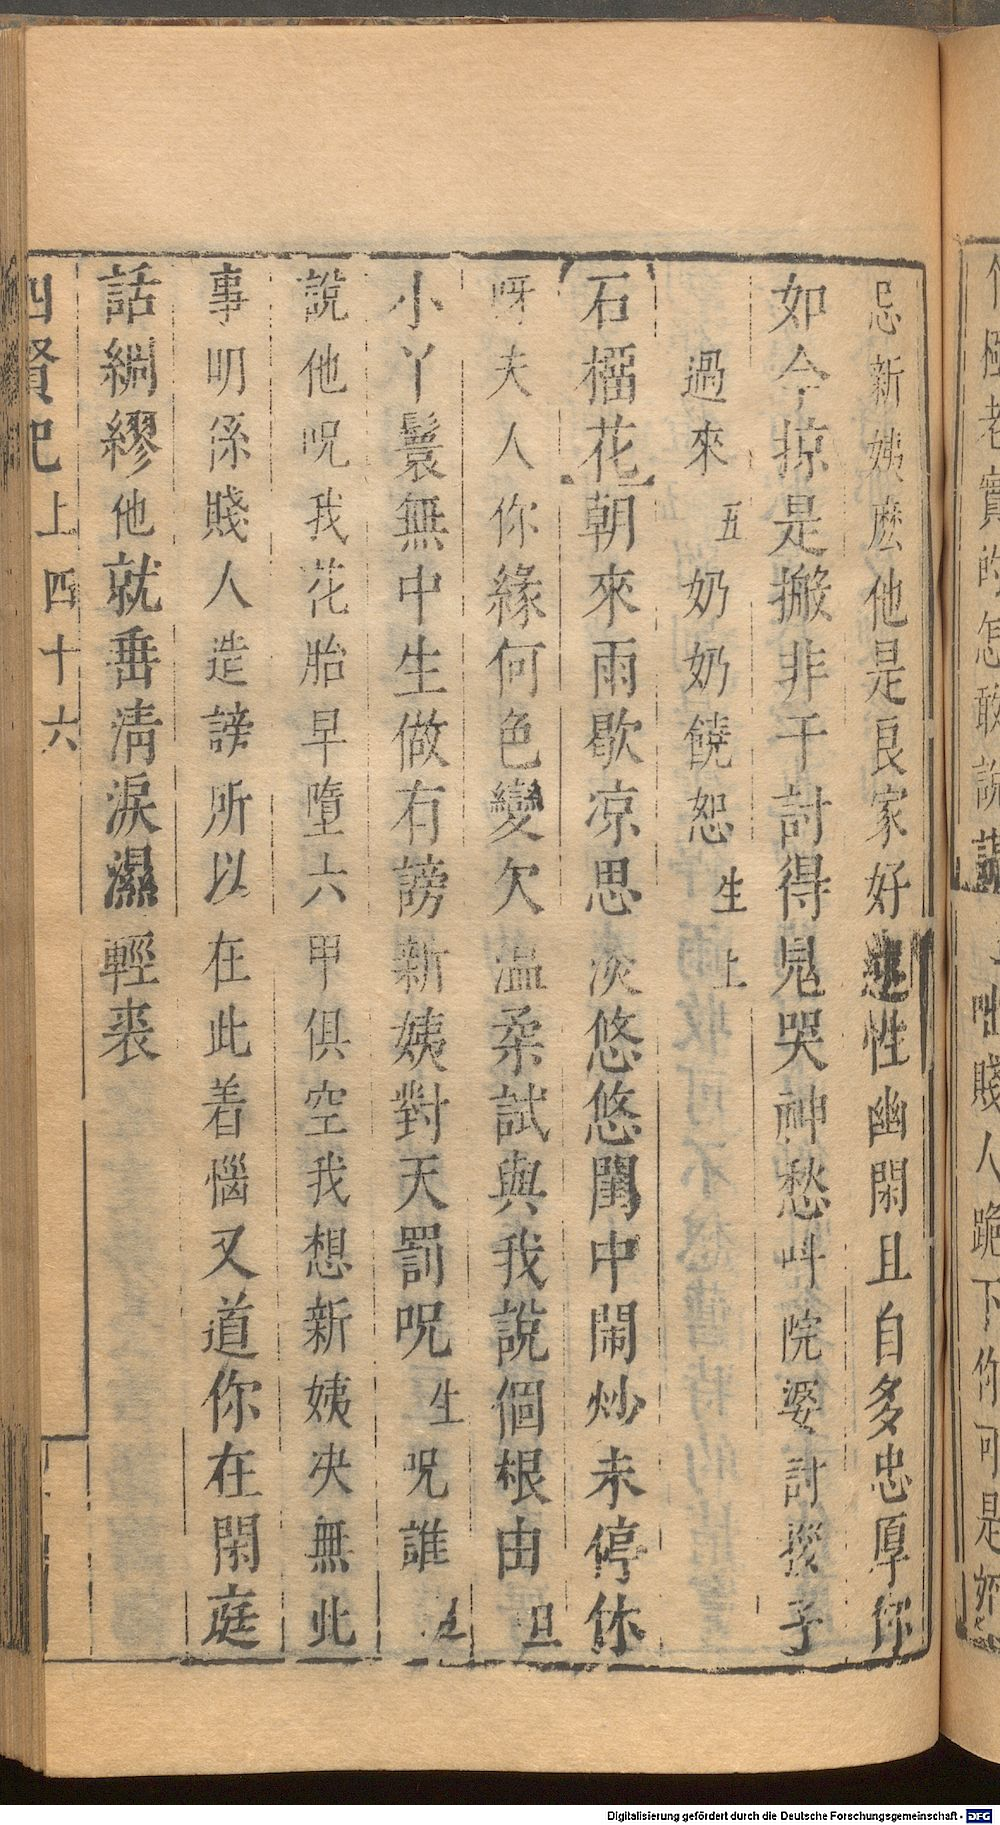 忌新姨麽他是良家好 性幽閑且自多忠厚你
如今掠是搬非干討得鬼哭神愁 院婆討 子
過來五奶奶饒恕生上
石橊花朝來雨歇凉思淡悠悠閨中閙炒未停休
呀夫人你緣何色變欠温柔試與我說個根由旦
小丫鬟無中生做有謗新姨對天罰呪生呪誰
說他呪我花胎早墮六甲俱空我想新姨决無此
事明係賤人造謗所以在此着惱又道你在閑庭
話綢繆他就垂淸淚濕輕裘
四賢記上四十六
老實的怎敢說 賤人跪下你可是
Digitalisierung gefördert durch die Deutsche Forschungsgemeinschaft - DFG